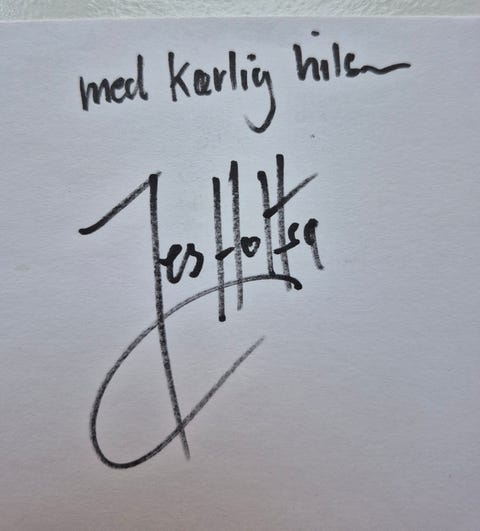 med kærlig hils
Jes Holtsø